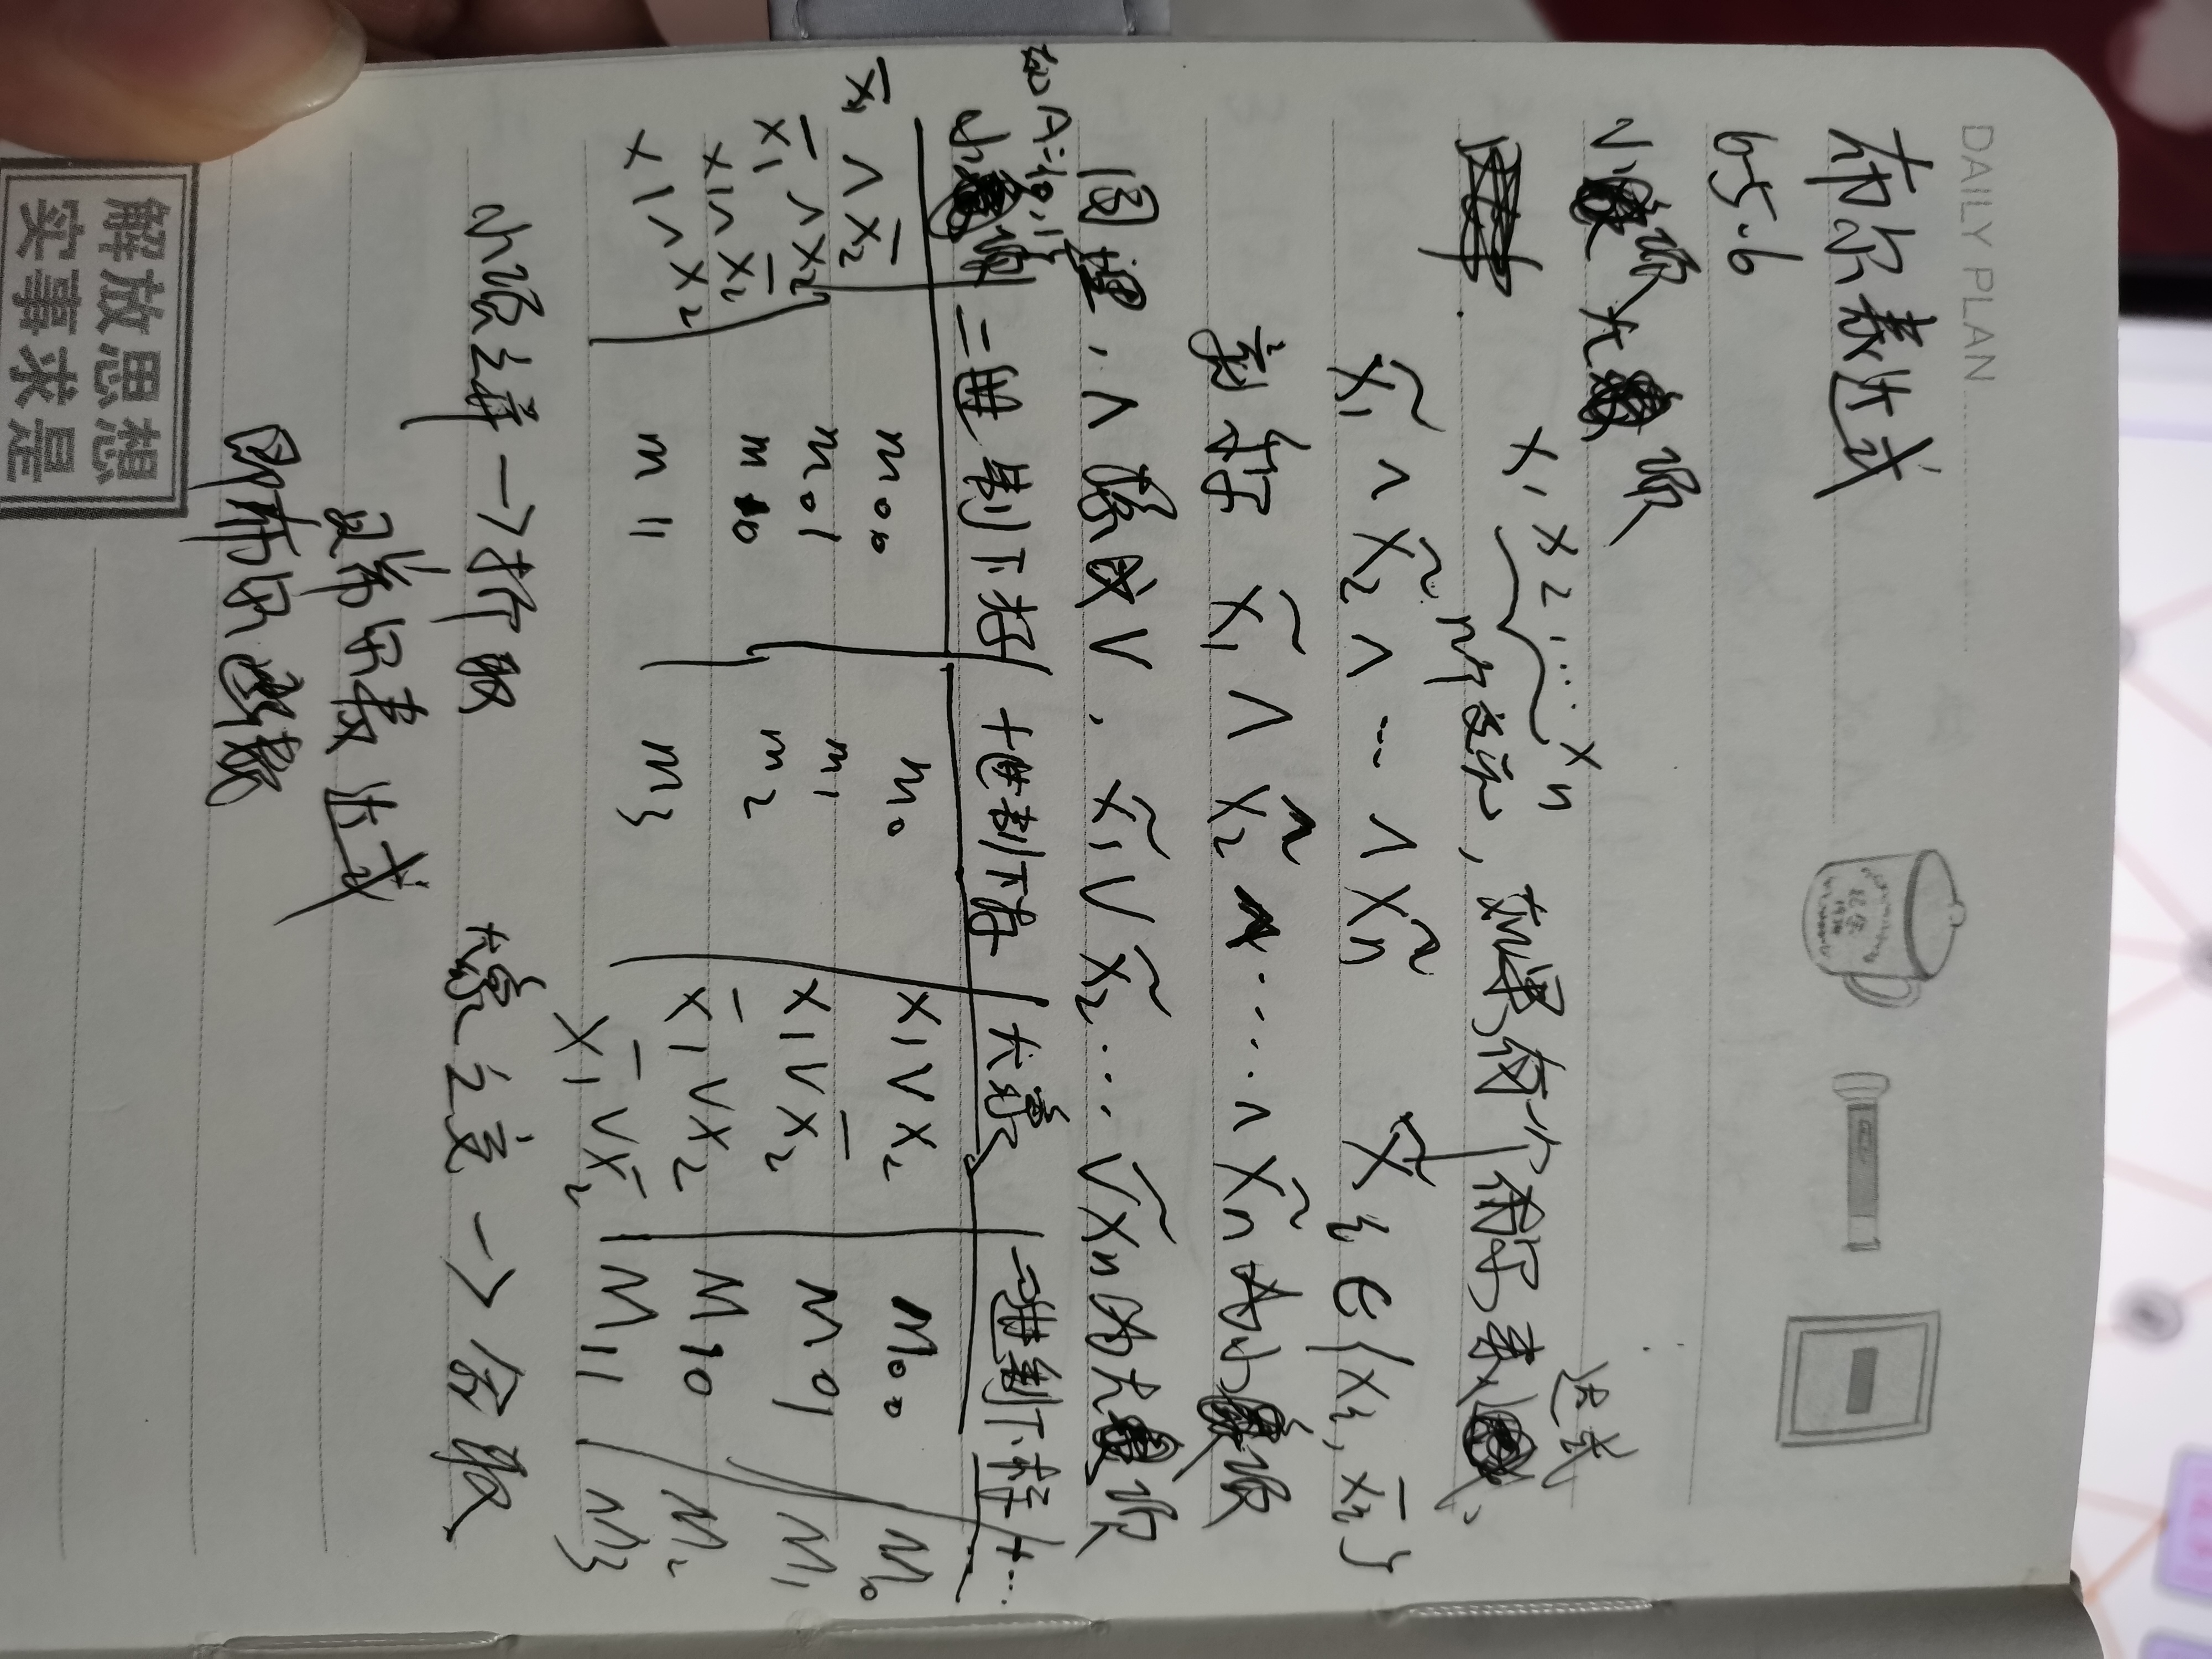 DAILY PLAN
布尔表达式
b5.6
小项 大项
x1 x2,… xn
n个变元,如果有个布尔表达式
x̃1 ∧ x̃2 ∧ … ∧ x̃n x̃i ∈ {xi, x̄i}
x̃1 ∧ x̃2 ∧ … ∧ x̃n 为小项
同理,∧ 换成 ∨, x̃1 ∨ x̃2 … ∨ x̃n 为大项
如A={0,1}
小项 二进制下标 十进制下标 大项 二进制下标 十…
x̄1 ∧ x̄2 m00 m0 x1 ∨ x2 M00 M0
x̄1 ∧ x2 m01 m1 x1 ∨ x̄2 M01 M1
x1 ∧ x̄2 m10 m2 x̄1 ∨ x2 M10 M2
x1 ∧ x2 m11 m3 x̄1 ∨ x̄2 M11 M3
小项之并 → 析取 大项之交 → 合取
布尔表达式
即布尔函数
解放思想
实事求是